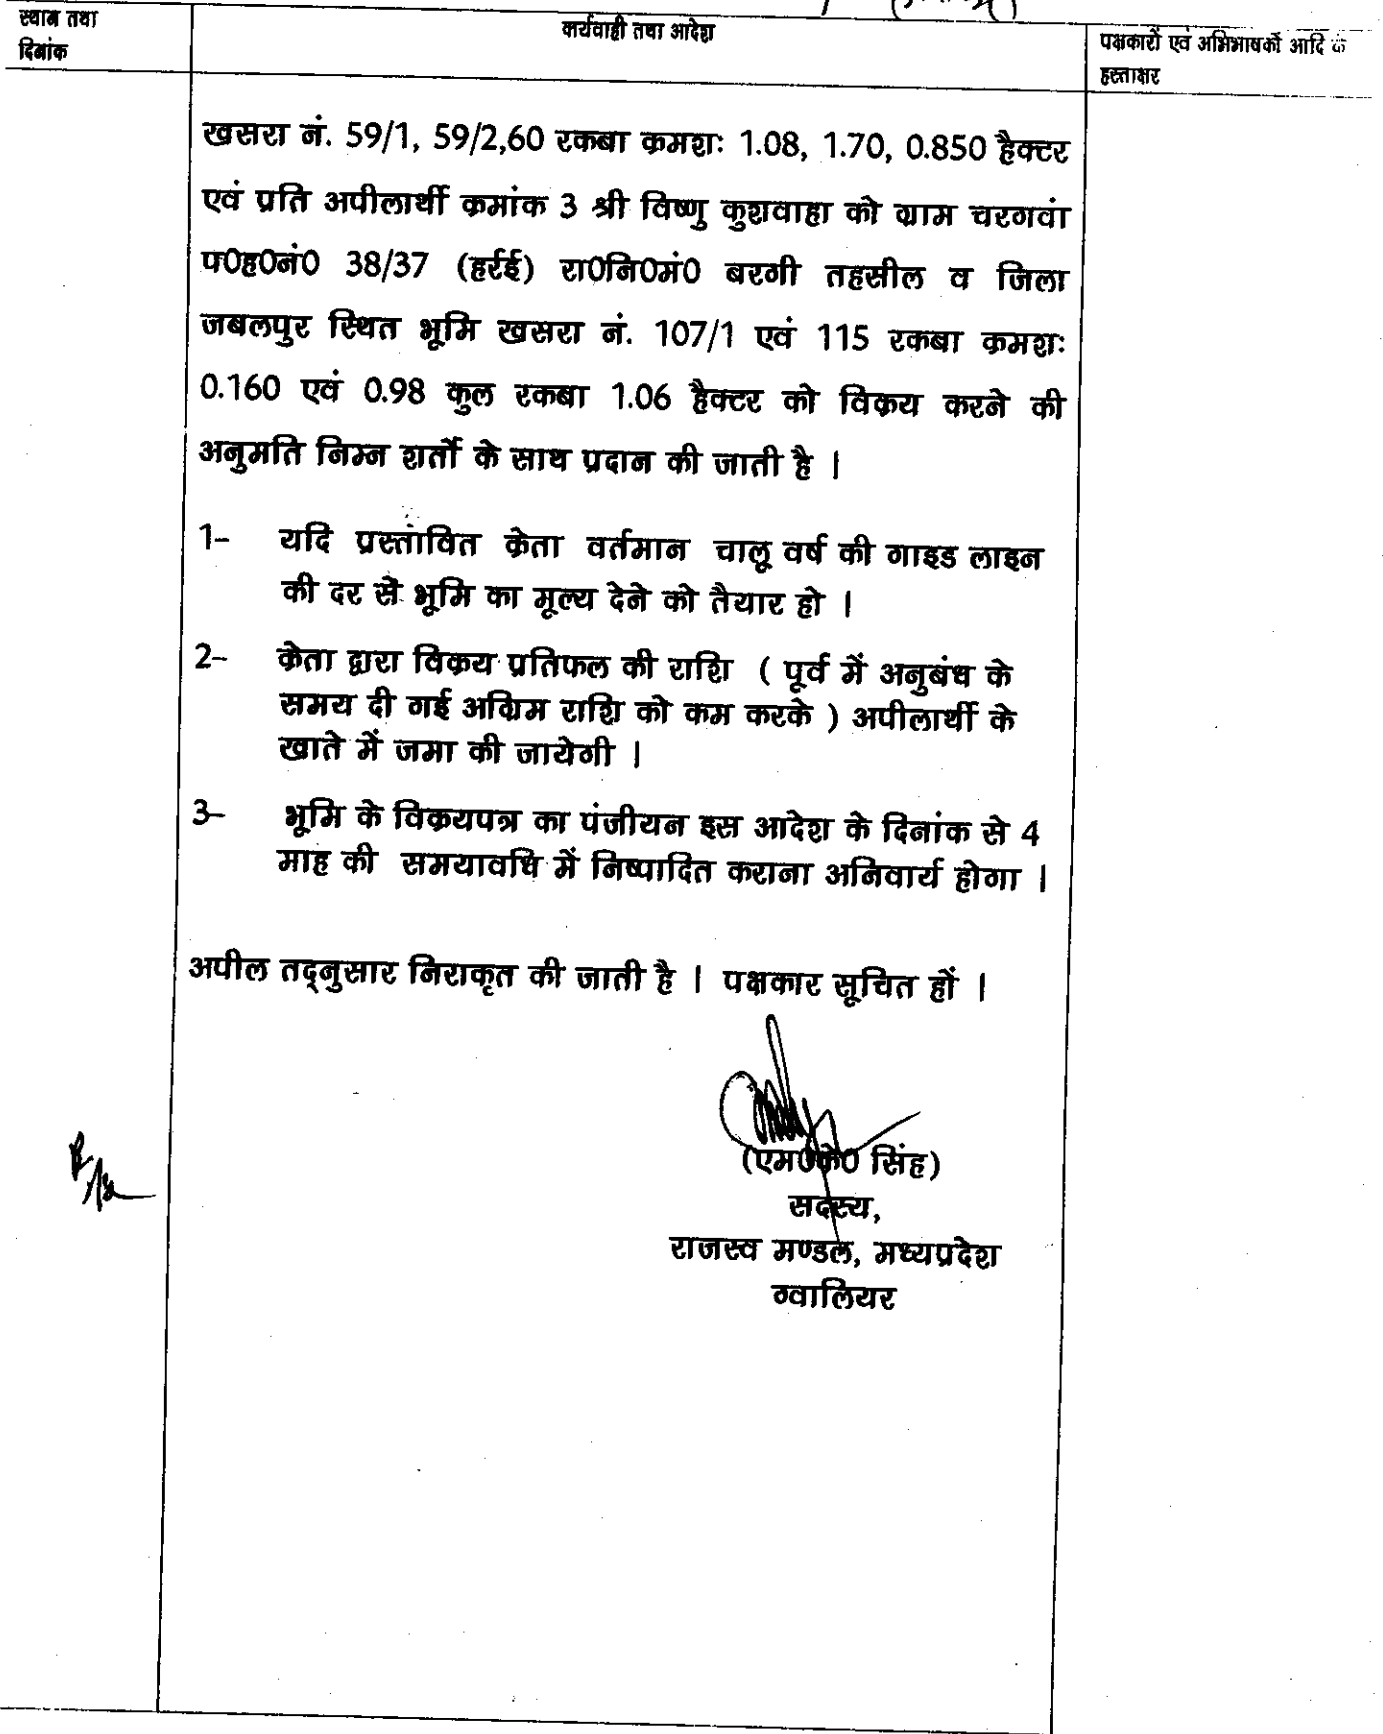 स्थान तथा
दिनांक
कार्यवाही तथा आदेश
पक्षकारों एवं अभिभाषकों आदि के
हस्ताक्षर
खसरा नं. 59/1, 59/2,60 रकबा क्रमशः 1.08, 1.70, 0.850 हैक्टर
एवं प्रति अपीलार्थी क्रमांक 3 श्री विष्णु कुशवाहा को ग्राम चरगवां
प0ह0नं0 38/37 (हर्रई) रा0नि0मं0 बरगी तहसील व जिला
जबलपुर स्थित भूमि खसरा नं. 107/1 एवं 115 रकबा क्रमशः
0.160 एवं 0.98 कुल रकबा 1.06 हैक्टर को विक्रय करने की
अनुमति निम्न शर्तो के साथ प्रदान की जाती है ।
1- यदि प्रस्तावित क्रेता वर्तमान चालू वर्ष की गाइड लाइन
की दर से भूमि का मूल्य देने को तैयार हो ।
2- क्रेता द्वारा विक्रय प्रतिफल की राशि ( पूर्व में अनुबंध के
समय दी गई अग्रिम राशि को कम करके ) अपीलार्थी के
खाते में जमा की जायेगी ।
3- भूमि के विक्रयपत्र का पंजीयन इस आदेश के दिनांक से 4
माह की समयावधि में निष्पादित कराना अनिवार्य होगा ।
अपील तद्नुसार निराकृत की जाती है । पक्षकार सूचित हों ।
(एम0के0 सिंह)
सदस्य,
राजस्व मण्डल, मध्यप्रदेश
ग्वालियर